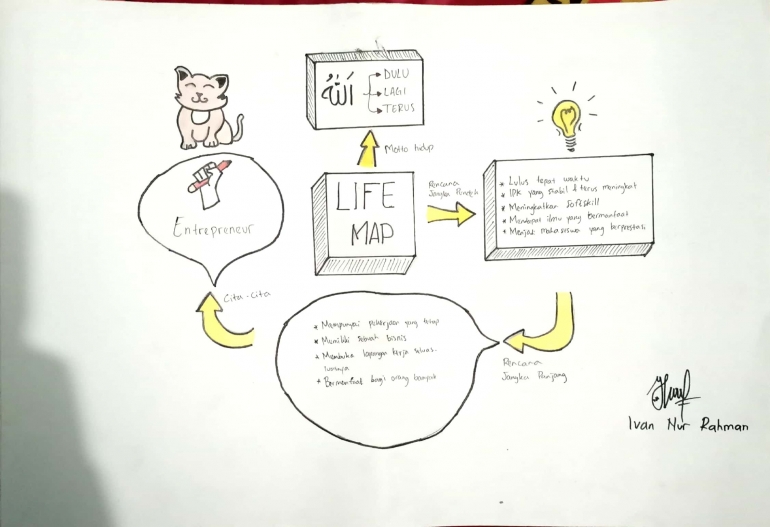 اللّٰهُ
DULU
LAGI
TERUS
Motto hidup
LIFE
MAP
Rencana
Jangka Pendek
* Lulus tepat waktu
* IPK yang stabil & terus meningkat
* Meningkatkan Softskill
* Mendapat ilmu yang Bermanfaat
* Menjadi mahasiswa yang berprestasi
Rencana
Jangka Panjang
* Mempunyai pekerjaan yang tetap
* Memiliki sebuah bisnis
* Membuka lapangan kerja seluas-
luasnya
* Bermanfaat bagi orang banyak
Cita-Cita
Entrepreneur
Ivan Nur Rahman